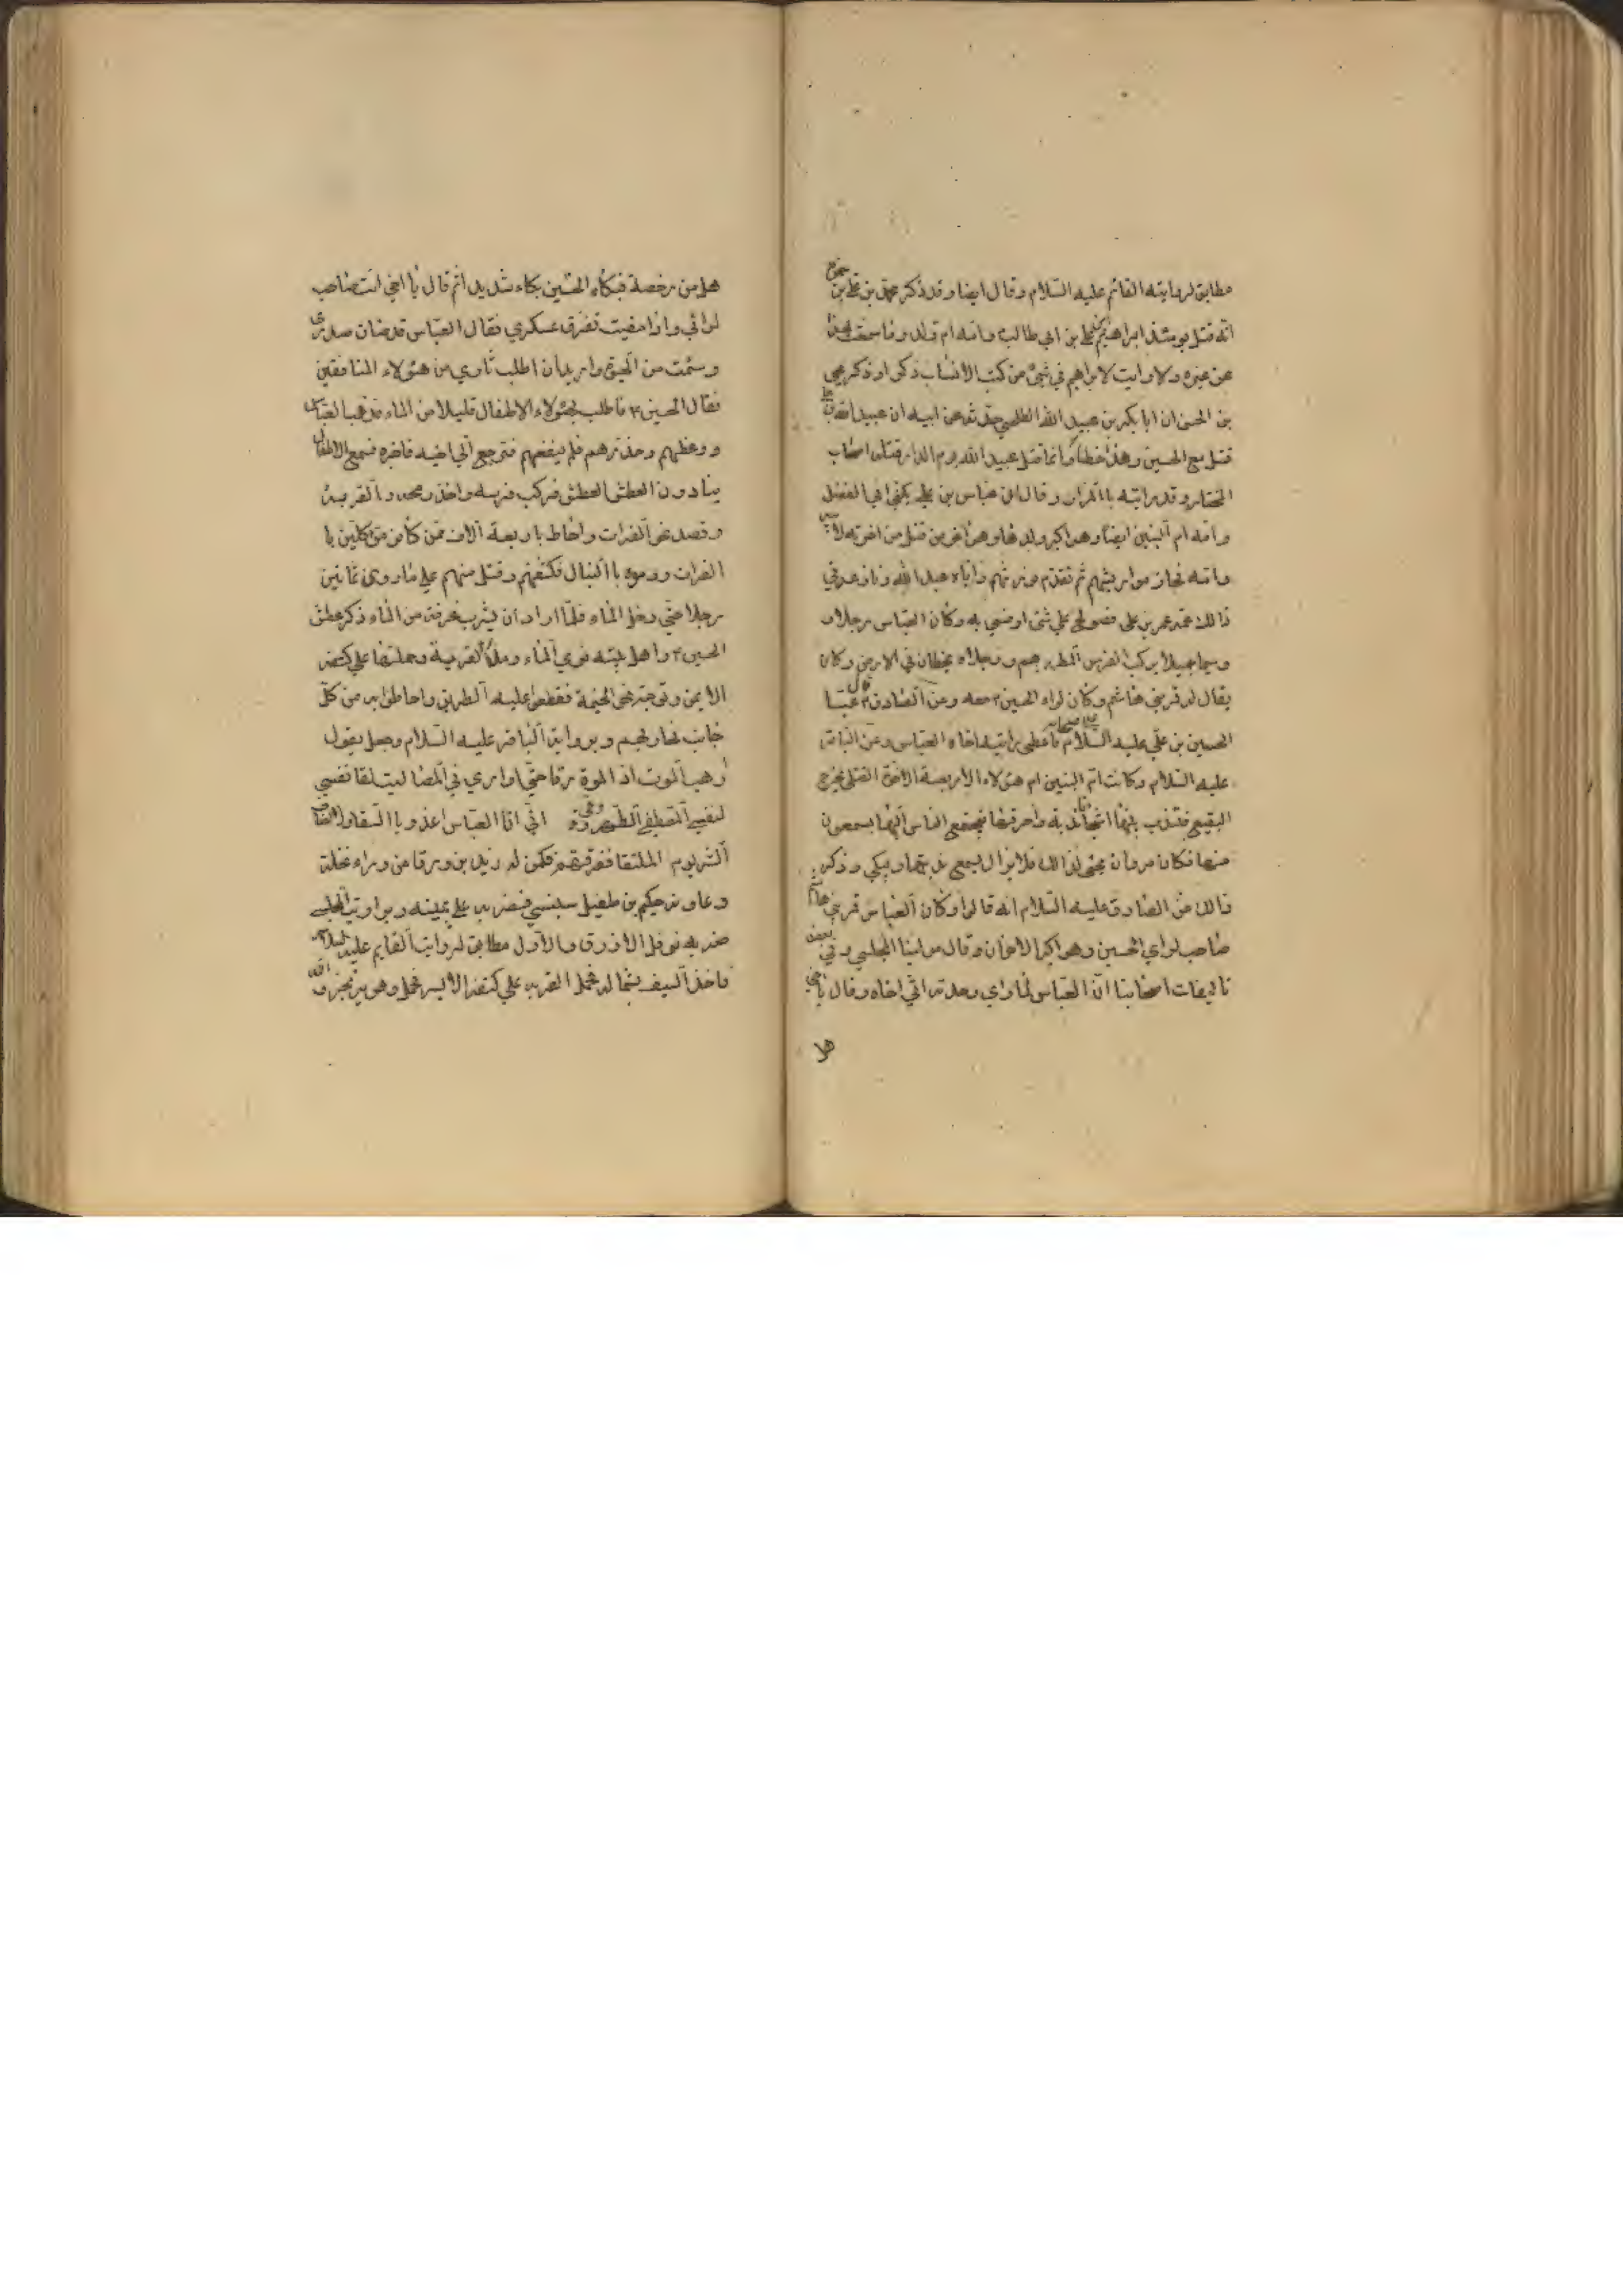 مطابق لروايته القائم عليه السلام وقال ايضا وقد ذكر محمد بن علي بن حمزة
انه قتل يومئذ ابراهيم بن علي بن ابي طالب وامه ام ولد وما سمعت بهذا
عن غيره ولا رايت لابراهيم في شئ من كتب الانساب ذكرا وذكر يحيى
بن الحسن ان ابا بكر بن عبيد الله الطلحي حدثه عن ابيه ان عبيد الله بن علي
قتل مع الحسين وهذا خطأ وانما قتل عبيد الله يوم الدار قتله اصحاب
المختار وقد رايته بالمزار وقال ان عباس بن علي يكنى ابي الفضل
وامه ام البنين ايضا وهو اكبر ولدها وهو اخر من قتل من اخوته لابيه
وامه فحاز مواريثهم ثم تقدم فورثهم واياه عبيد الله ونازعه في
ذالك عمه عمر بن علي فصولح على شئ ارضى به وكان العباس رجلا و
وسيما جميلا يركب الفرس المطهم ورجلاه يخطان في الارض وكان
يقال له قمر بني هاشم وكان لواء الحسين ع معه وعن الصادق ع قال عبا
الحسين بن علي عليه السلام اصحابه فاعطى رايته اخاه العباس وعن الباقر
عليه السلام وكانت ام البنين ام هؤلاء الاربعة الاخوة القتلى تخرج
البقيع فتندب بنيها اشجا ندبة واحرقها فيجتمع الناس اليها يسمعون
منها فكان مروان يجئ لذالك فلا يزال يسمع ندبتها ويبكي وذكر
ذالك عن الصادق عليه السلام انه قالوا وكان العباس قمر بني هاشم
صاحب لواي الحسين وهو اكبر الاخوان وقال مولينا المجلسي وفي بعض
تاليفات اصحابنا ان العباس لما راي وحدته اتي اخاه وقال يا اخي
هل
هل من رخصة فبكاء الحسين بكاء شديدا ثم قال يا اخي انت صاحب
لوائي واذا مضيت تفرق عسكري فقال العباس قد ضاق صدري
وسئمت من الحيوة واريد ان اطلب ثاري من هؤلاء المنافقين
فقال الحسين ع فاطلب لهؤلاء الاطفال قليلا من الماء فذهب العباس
ووعظهم وحذرهم فلم ينفعهم فرجع الي اخيه فاخبره فسمع الاطفال
ينادون العطش العطش فركب فرسه واخذ رمحه والقربة
وقصد نحو الفرات واحاط باربعة الاف ممن كانوا موكلين با
الفرات ورموه باالنبال فكشفهم وقتل منهم علي ما روي ثمانين
رجلا حتي دخل الماء فلما اراد ان يشرب غرفة من الماء ذكر عطش
الحسين ع واهل بيته فرمي الماء وملأ القربة وحملها علي كتفه
الايمن وتوجه نحو الخيمة فقطعوا عليه الطريق واحاطوا به من كل
جانب فحاربهم وبرواية الباقر عليه السلام وجعل يقول
لا ارهب الموت اذ الموة رقا حتي اواري في المصاليت لقا نفسي
لنفس المصطفي الطهر وقى اني انا العباس اغدو باالسقا ولا اخاف
الشر يوم الملتقا ففرقهم فكمن له زيد بن ورقا من وراء نخلة
وعاونه حكيم بن طفيل سنبسي فضربه علي يمينه وبرواية المجلسي
ضربه نوفل الازرق والاول مطابق لرواية القايم عليه السلام
فاخذ السيف بشماله فحمل القربه علي كتفه الايسر فحمل وهو يرتجز والله